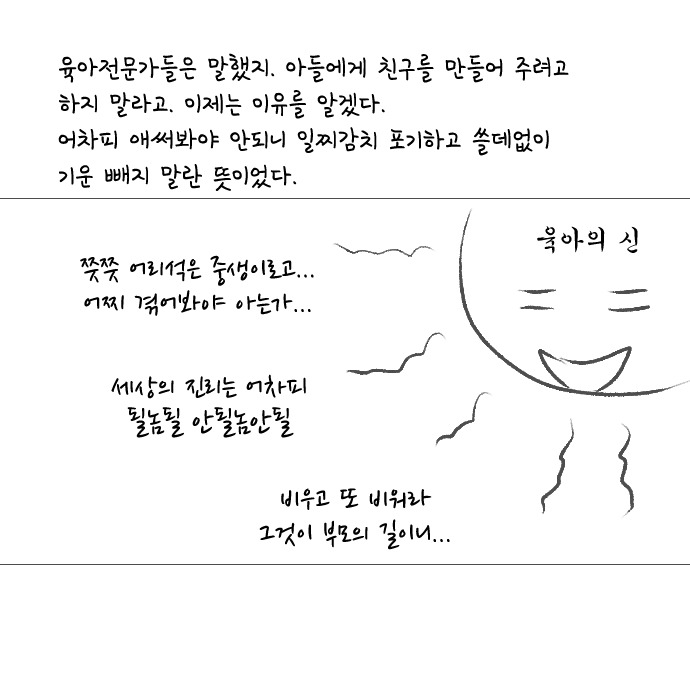 육아전문가들은 말했지. 아들에게 친구를 만들어 주려고
하지 말라고. 이제는 이유를 알겠다.
어차피 애써봐야 안되니 일찌감치 포기하고 쓸데없이
기운 빼지 말란 뜻이었다.
육아의 신
쯧쯧 어리석은 중생이로고...
어찌 겪어봐야 아는가...
세상의 진리는 어차피
될놈될 안될놈안될
비우고 또 비워라
그것이 부모의 길이니...